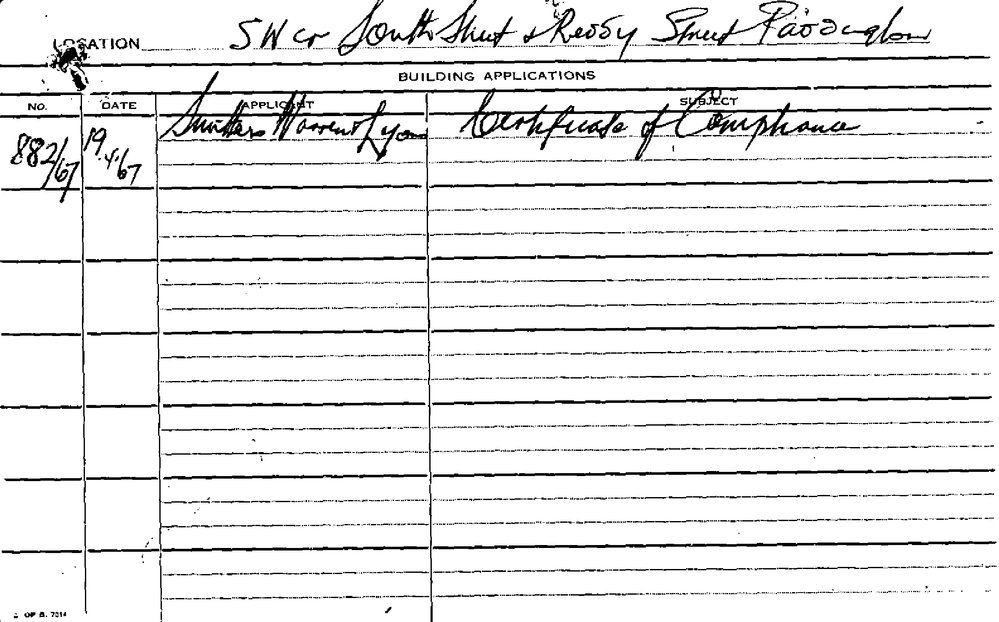 LOCATION SW cr South Street & Reddy Street Paddington
BUILDING APPLICATIONS
NO. DATE APPLICANT SUBJECT
882/67 19.4.67 Warren & Lyon Certificate of Compliance
OF S. 7014